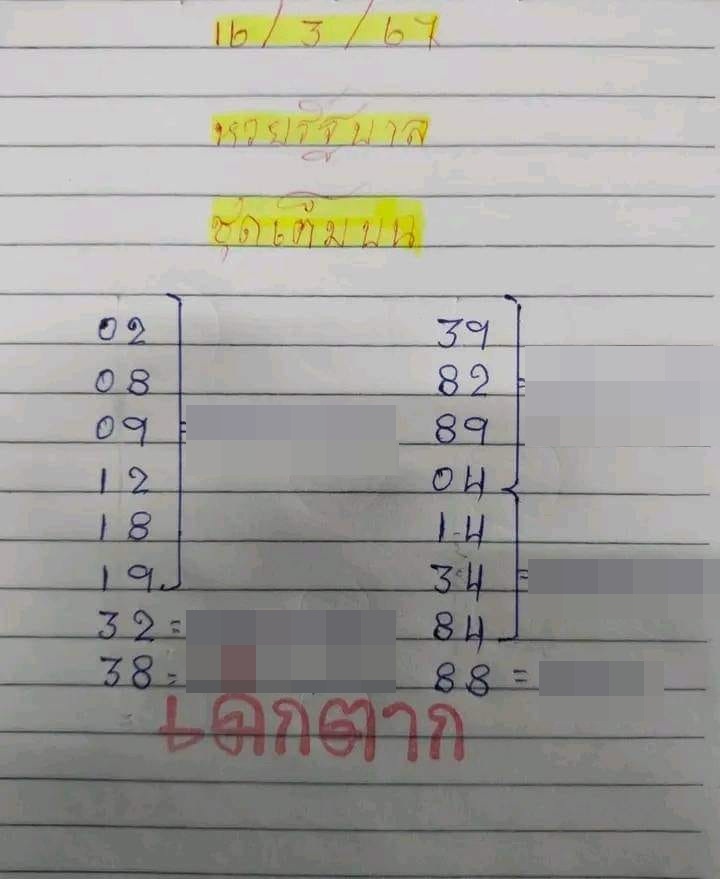 16/3/67
หวยรัฐบาล
ชุดเต็มบน
02 39
08 82
09 = 89 =
12 04
18 14
19 34 =
32 = 84
38 = 88 =
เด็กตาก